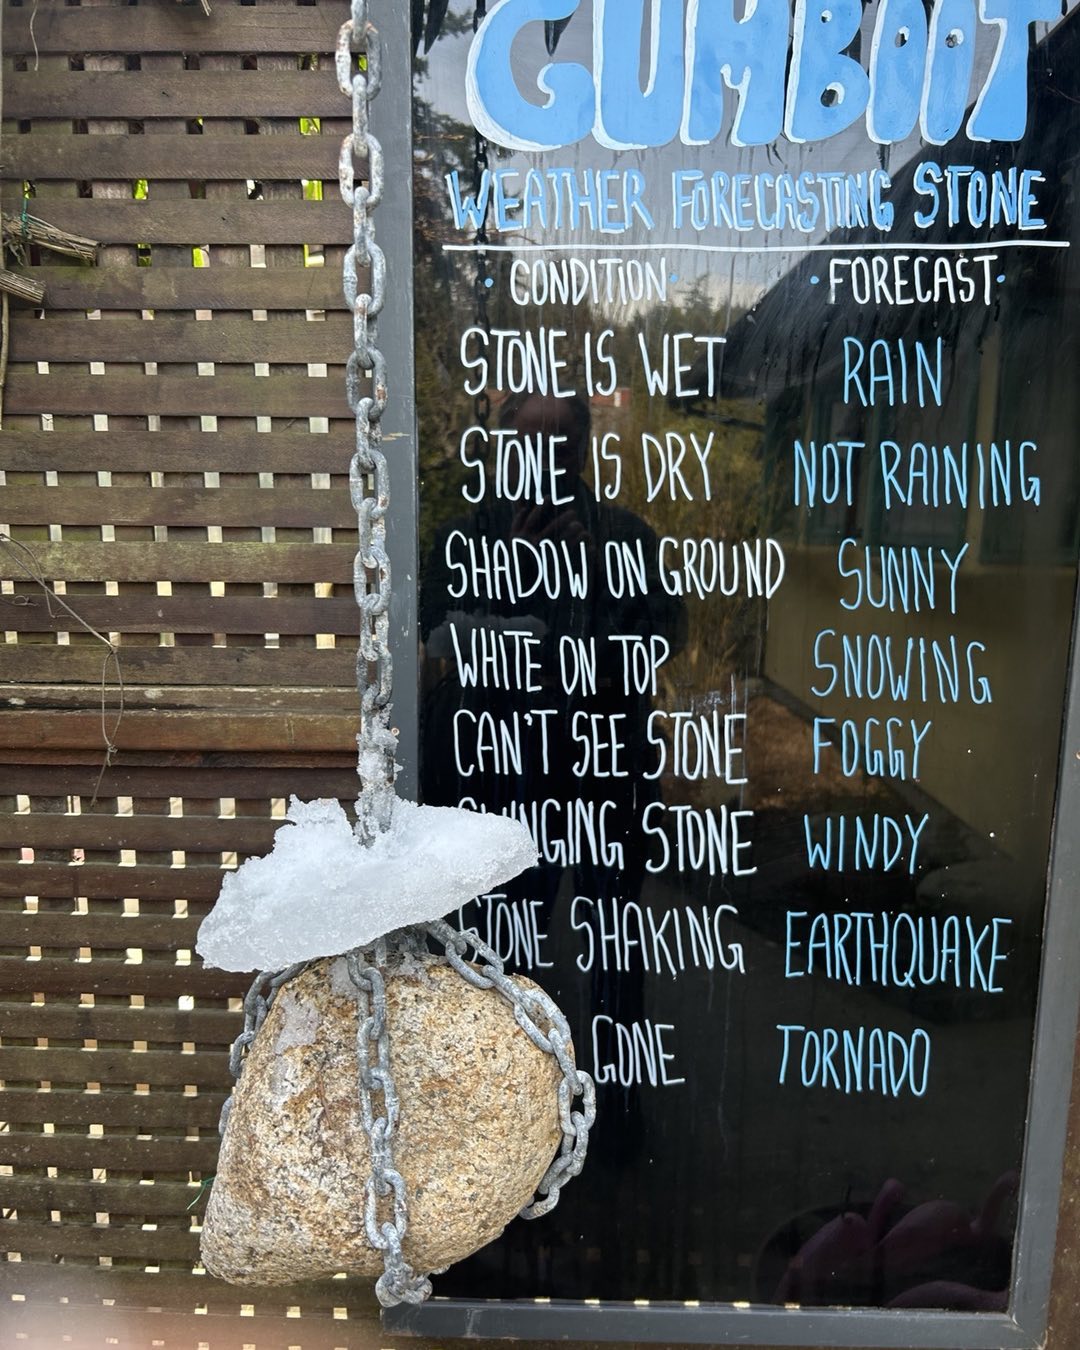 GUMBOOT
WEATHER FORECASTING STONE
· CONDITION · · FORECAST ·
STONE IS WET RAIN
STONE IS DRY NOT RAINING
SHADOW ON GROUND SUNNY
WHITE ON TOP SNOWING
CAN'T SEE STONE FOGGY
SWINGING STONE WINDY
STONE SHAKING EARTHQUAKE
GONE TORNADO